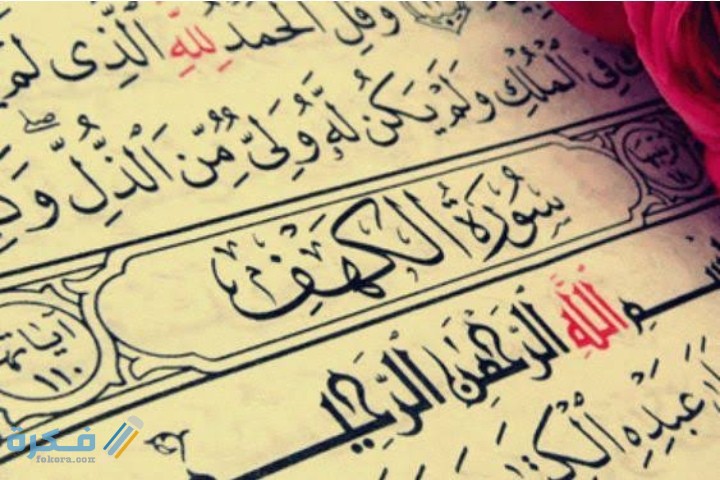 وَقُلِ الْحَمْدُ لِلَّهِ الَّذِي لَمْ
فِي الْمُلْكِ وَلَمْ يَكُن لَّهُ وَلِيٌّ مِّنَ الذُّلِّ
سُورَةُ الْكَهْفِ
آياتها ١١٠
اللَّهِ الرَّحْمَٰنِ الرَّحِيمِ
عَبْدِهِ
فكرة
fokora.com